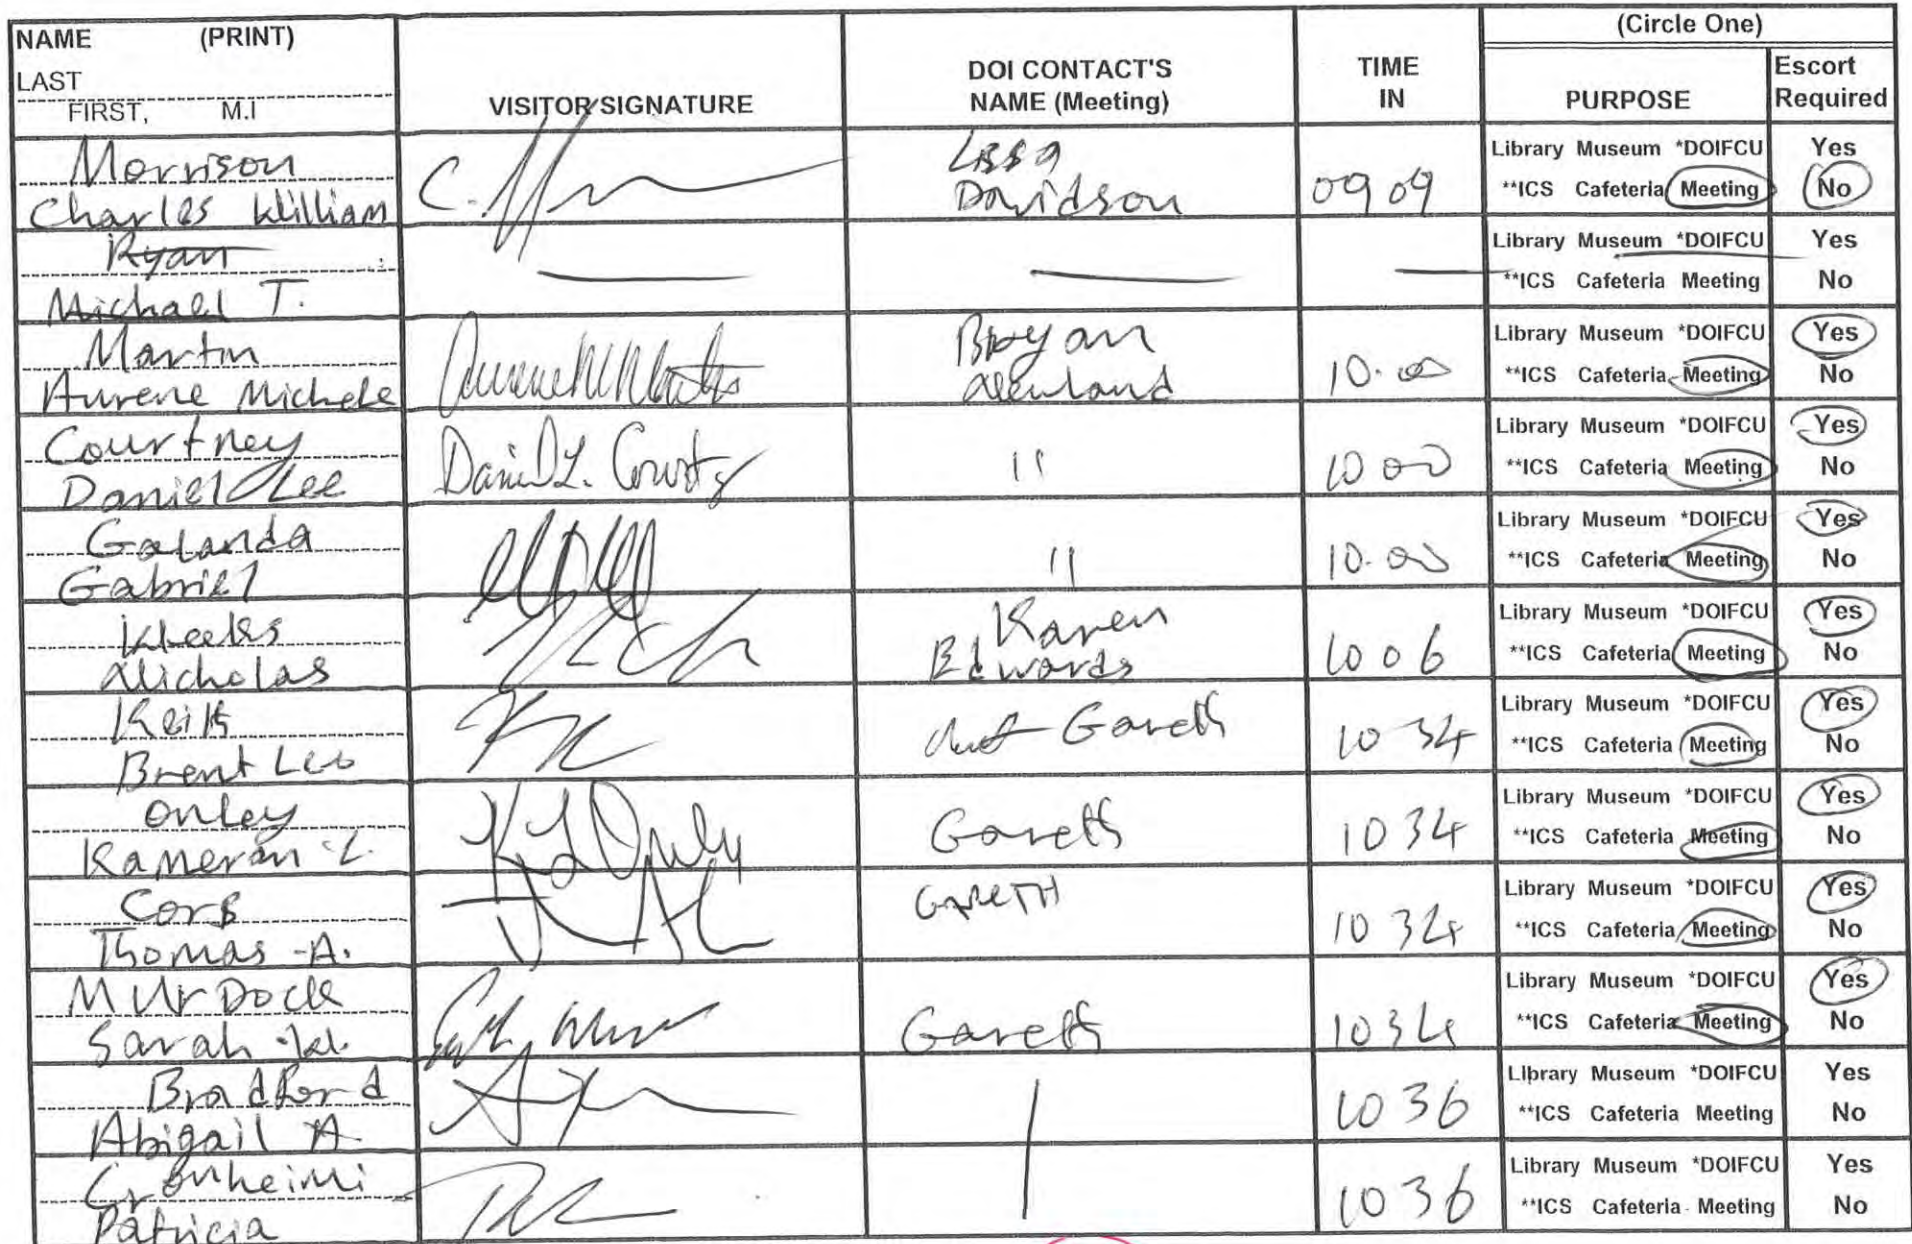 NAME (PRINT)
LAST
FIRST, M.I
VISITOR SIGNATURE
DOI CONTACT'S
NAME (Meeting)
TIME
IN
(Circle One)
PURPOSE
Escort
Required
Morrison
Charles William
C.
Lissa
Davidson
0909
Library Museum *DOIFCU Yes
**ICS Cafeteria Meeting No
Ryan
Michael T.
Library Museum *DOIFCU Yes
**ICS Cafeteria Meeting No
Martin
Aurene Michele
Bryan
Newland
10.00
Library Museum *DOIFCU Yes
**ICS Cafeteria Meeting No
Courtney
Daniel Lee
Daniel L. Courtney
"
1000
Library Museum *DOIFCU Yes
**ICS Cafeteria Meeting No
Galanda
Gabriel
"
10.00
Library Museum *DOIFCU Yes
**ICS Cafeteria Meeting No
Nicholas
Karen
Edwards
1006
Library Museum *DOIFCU Yes
**ICS Cafeteria Meeting No
Keith
Brent Leo
Gareth
1034
Library Museum *DOIFCU Yes
**ICS Cafeteria Meeting No
Onley
Kameran L.
Gareth
1034
Library Museum *DOIFCU Yes
**ICS Cafeteria Meeting No
Thomas A.
GARETH
1034
Library Museum *DOIFCU Yes
**ICS Cafeteria Meeting No
MUrDock
Sarah
Gareth
1034
Library Museum *DOIFCU Yes
**ICS Cafeteria Meeting No
Bradford
Abigail A
1036
Library Museum *DOIFCU Yes
**ICS Cafeteria Meeting No
Patricia
1036
Library Museum *DOIFCU Yes
**ICS Cafeteria Meeting No